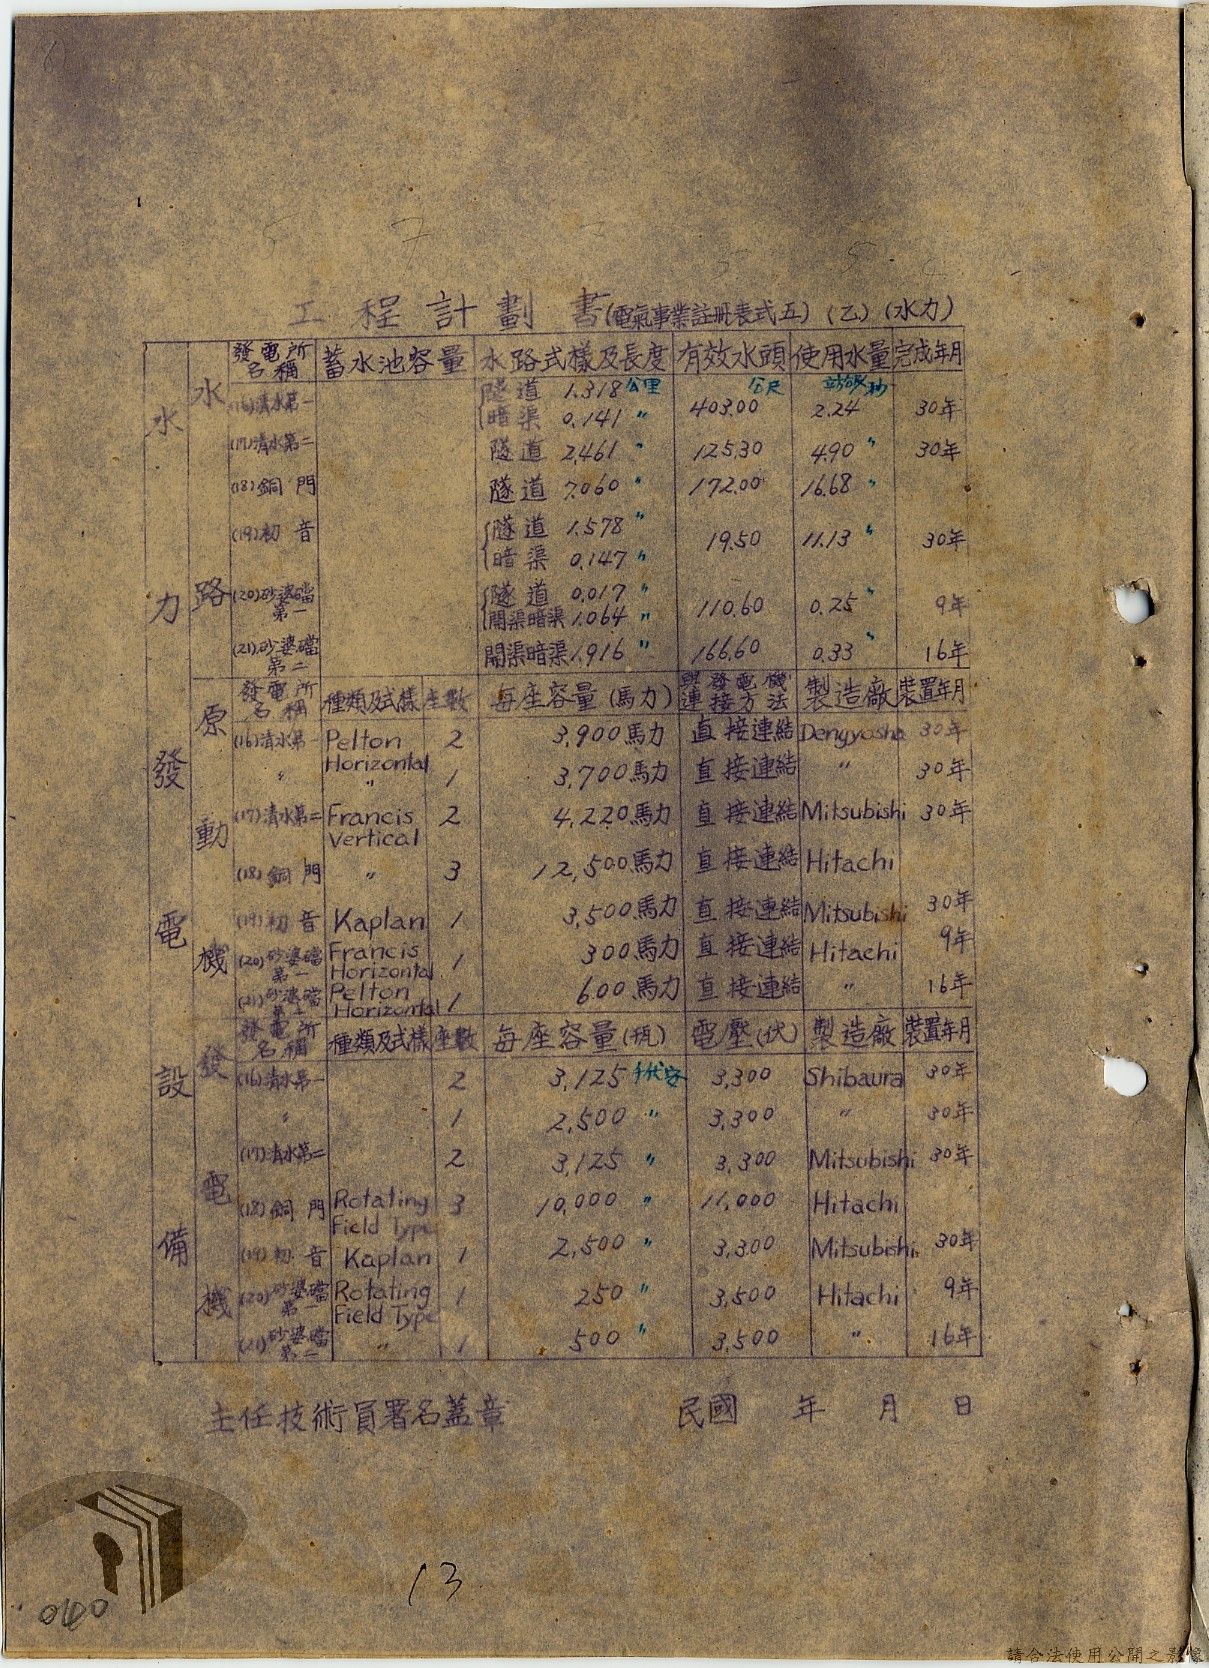 工程計劃書(電氣事業註冊表式五)(乙)(水力)
水力發電設備
水路
發電所名稱 蓄水池容量 水路式樣及長度 有效水頭 使用水量 完成年月
(16)清水第一 隧道 1.318公里 403.00公尺 2.24 30年
暗渠 0.141 〃
(17)清水第二 隧道 2.461 〃 125.30 4.90 〃 30年
(18)銅門 隧道 7.060 〃 172.00 16.68 〃
(19)初音 隧道 1.578 〃 19.50 11.13 〃 30年
暗渠 0.147 〃
(20)砂婆礑第一 隧道 0.017 〃 110.60 0.25 〃 9年
開渠暗渠 1.064 〃
(21)砂婆礑第二 開渠暗渠 1.916 〃 166.60 0.33 〃 16年
原動機
發電所名稱 種類及式樣 座數 每座容量(馬力) 與發電機連接方法 製造廠 裝置年月
(16)清水第一 Pelton Horizontal 2 3,900馬力 直接連結 Dengyosha 30年
〃 〃 1 3,700馬力 直接連結 〃 30年
(17)清水第二 Francis Vertical 2 4,220馬力 直接連結 Mitsubishi 30年
(18)銅門 〃 3 12,500馬力 直接連結 Hitachi
(19)初音 Kaplan 1 3,500馬力 直接連結 Mitsubishi 30年
(20)砂婆礑第一 Francis Horizontal 1 300馬力 直接連結 Hitachi 9年
(21)砂婆礑第二 Pelton Horizontal 1 600馬力 直接連結 〃 16年
發電機
發電所名稱 種類及式樣 座數 每座容量(瓩) 電壓(伏) 製造廠 裝置年月
(16)清水第一 2 3,125千伏安 3,300 Shibaura 30年
〃 1 2,500 〃 3,300 〃 30年
(17)清水第二 2 3,125 〃 3,300 Mitsubishi 30年
(18)銅門 Rotating Field Type 3 10,000 〃 11,000 Hitachi
(19)初音 Kaplan 1 2,500 〃 3,300 Mitsubishi 30年
(20)砂婆礑第一 Rotating Field Type 1 250 〃 3,500 Hitachi 9年
(21)砂婆礑第二 〃 1 500 〃 3,500 〃 16年
主任技術員署名蓋章 民國 年 月 日
13
請合法使用公開之影像